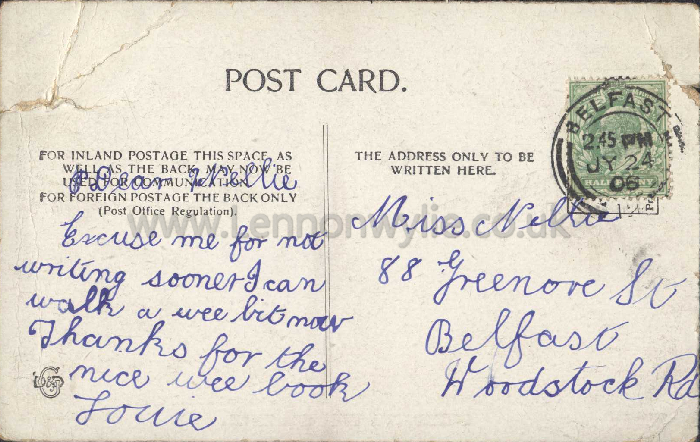 POST CARD.
BELFAST
2.45 PM
JY 24
06
FOR INLAND POSTAGE THIS SPACE, AS
WELL AS THE BACK, MAY NOW BE
USED FOR COMMUNICATION.
FOR FOREIGN POSTAGE THE BACK ONLY
(Post Office Regulation).
THE ADDRESS ONLY TO BE
WRITTEN HERE.
www.Lennonwylie.co.uk
Dear Nellie
Excuse me for not
writing sooner I can
walk a wee bit now
Thanks for the
nice wee book
Louie
Miss Nellie
88 Greenore St
Belfast
Woodstock Rd